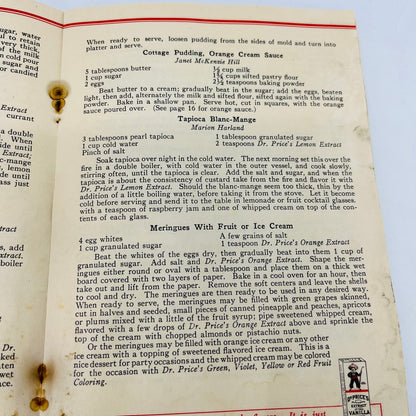 sugar, water
ful to retain
very thick,
of the milk
n cold pour
sugar and
or candied
Extract
currant
a double
l. When
side until
d water
lace until
ass just
Extract
s, add
boiler
n
Baked
to
When ready to serve, loosen pudding from the sides of mold and turn into
platter and serve.
Cottage Pudding, Orange Cream Sauce
Janet McKenzie Hill
3 tablespoons butter ½ cup milk
1 cup sugar 1¾ cups sifted pastry flour
2 eggs 2½ teaspoons baking powder
Beat butter to a cream; gradually beat in the sugar; add the eggs, beaten
light, then add, alternately, the milk and flour, sifted again with the baking
powder. Bake in a shallow pan. Serve hot, cut in squares, with the orange
sauce poured over. (See page 16 for orange sauce.)
Tapioca Blanc-Mange
Marion Harland
3 tablespoons pearl tapioca 1 tablespoon granulated sugar
1 cup cold water 2 teaspoons Dr. Price's Lemon Extract
Pinch of salt
Soak tapioca over night in the cold water. The next morning set this over the
fire in a double boiler, with cold water in the outer vessel, and cook slowly,
stirring often, until the tapioca is clear. Add the salt and sugar, and when the
tapioca is about the consistency of custard take from the fire and flavor it with
Dr. Price's Lemon Extract. Should the blanc-mange seem too thick, thin by the
addition of a little boiling water, before taking it from the stove. Let it become
cold before serving and send it to the table in lemonade or fruit cocktail glasses,
with a teaspoon of raspberry jam and one of whipped cream on top of the con-
tents of each glass.
Meringues With Fruit or Ice Cream
4 egg whites A few grains of salt
1 cup granulated sugar 1 teaspoon Dr. Price's Orange Extract
Beat the whites of the eggs dry, then gradually beat into them 1 cup of
granulated sugar. Add salt and Dr. Price's Orange Extract. Shape the mer-
ingues either round or oval with a tablespoon and place them on a thick wet
board covered with two layers of paper. Bake in a cool oven for an hour, then
take out and lift from the paper. Remove the soft centers and leave the shells
to cool and dry. The meringues are then ready to be used in any desired way.
When ready to serve, the meringues may be filled with green grapes skinned,
cut in halves and seeded, small pieces of canned pineapple and peaches, apricots
or plums mixed with a little of the fruit syrup; pipe sweetened whipped cream,
flavored with a few drops of Dr. Price's Orange Extract above and sprinkle the
top of the cream with chopped almonds or pistachio nuts.
Or the meringues may be filled with orange ice cream or any other
ice cream with a topping of sweetened flavored ice cream. This is a
nice dessert for party occasions and the whipped cream may be colored
for the occasion with Dr. Price's Green, Violet, Yellow or Red Fruit
Coloring.
DR. PRICE'S
EXTRACT
VANILLA
It is just